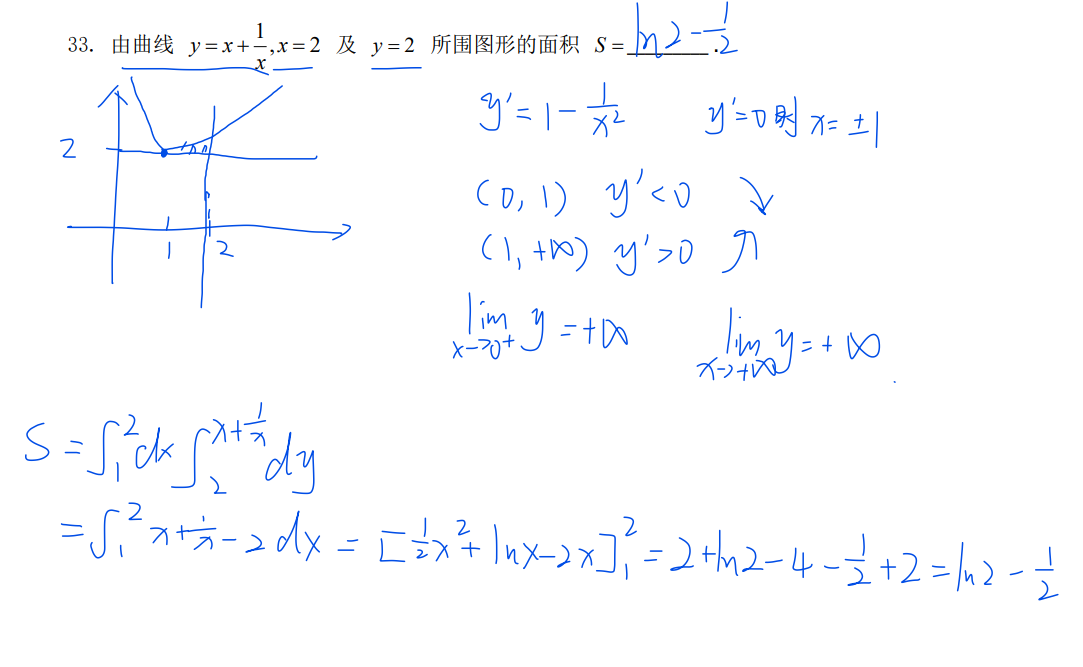 33. 由曲线 y=x+1/x,x=2 及 y=2 所围图形的面积 S=ln2-1/2.
y'=1-1/x² y'=0则 x=±1
2
(0,1) y'<0 ↘
(1,+∞) y'>0 ↗
1 2
lim x→0⁺ y=+∞ lim x→+∞ y=+∞
S=∫₁²dx∫₂^(x+1/x)dy
=∫₁² x+1/x-2dx=[1/2x²+lnx-2x]₁²=2+ln2-4-1/2+2=ln2-1/2